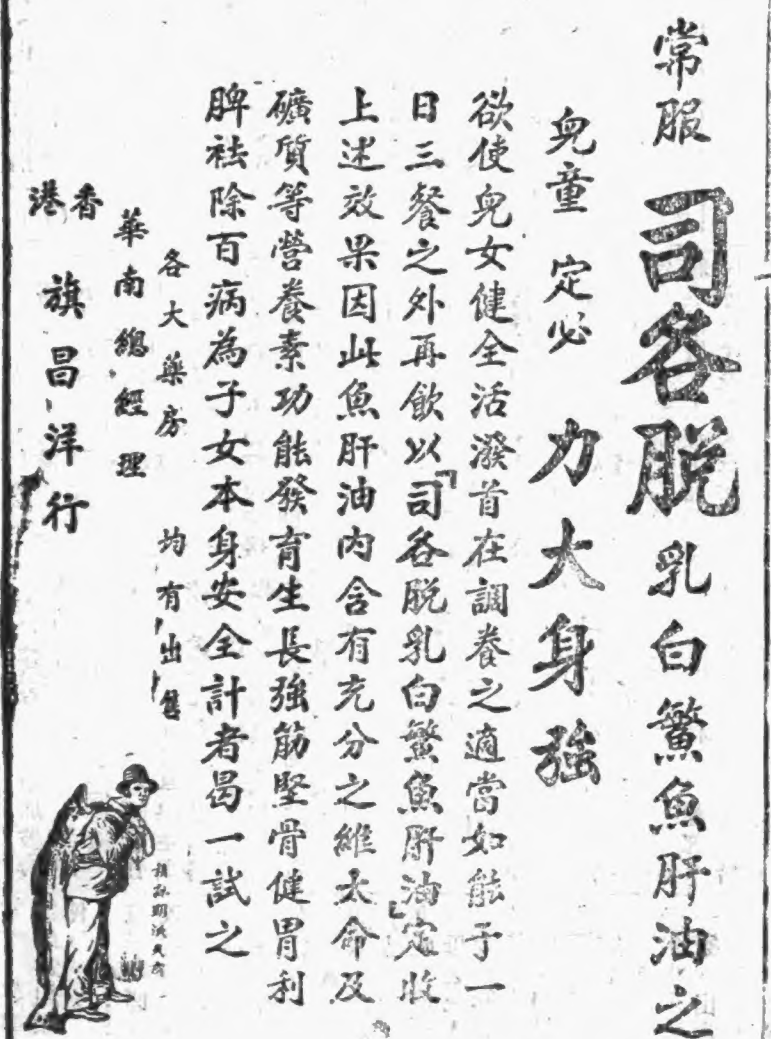 常服司各脫乳白鰵魚肝油之
兒童定必力大身強
欲使兒女健全活潑首在調養之適當如能于一
日三餐之外再飲以「司各脫乳白鰵魚肝油」定收
上述效果因此魚肝油內含有充分之維太命及
礦質等營養素功能發育生長強筋堅骨健胃利
脾祛除百病為子女本身安全計者曷一試之
各大藥房均有出售
華南總經理
香港旗昌洋行